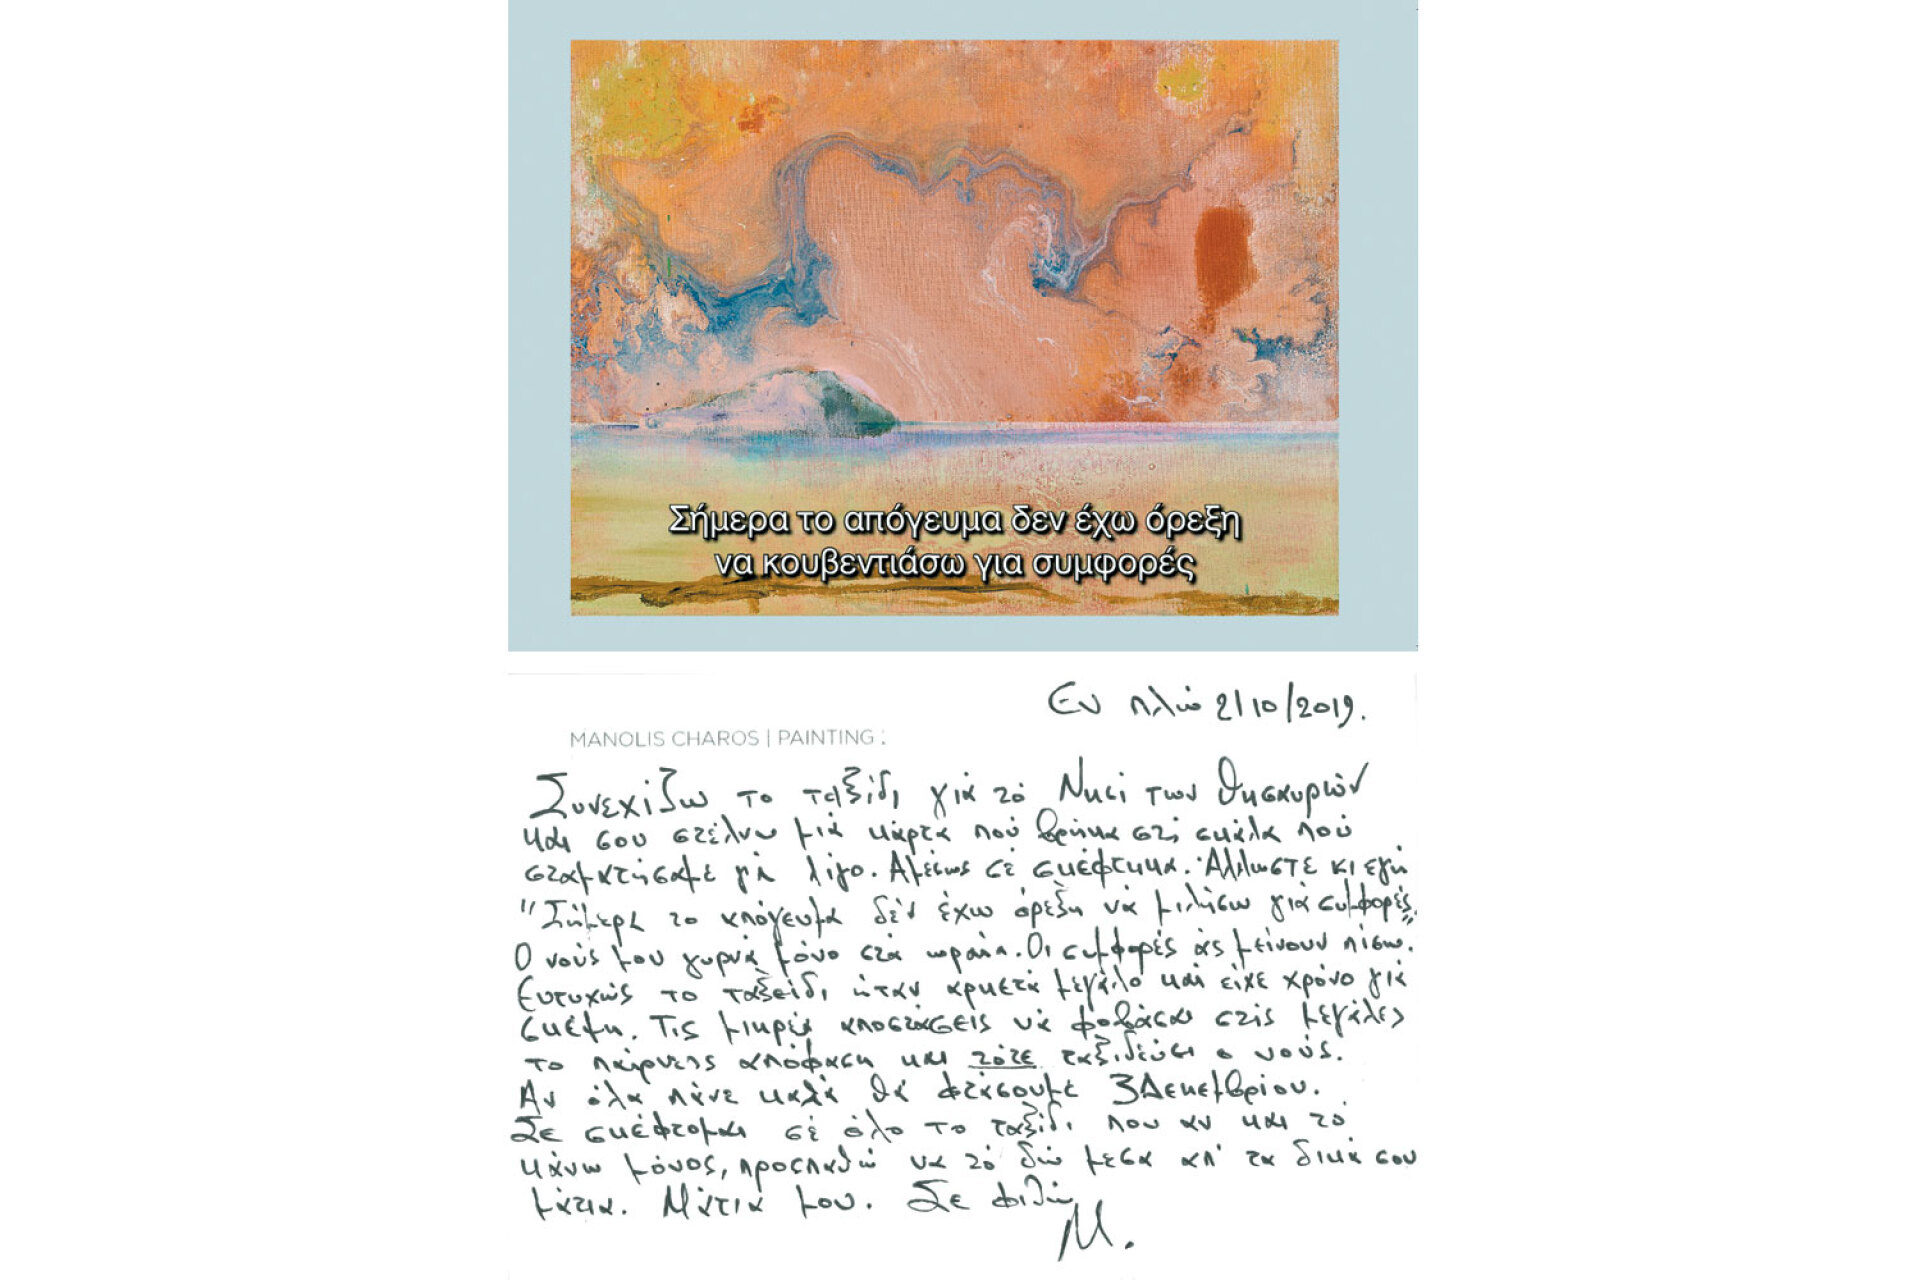 Σήμερα το απόγευμα δεν έχω όρεξη
να κουβεντιάσω για συμφορές
Εν πλω 2/10/2019.
MANOLIS CHAROS | PAINTING :
Συνεχίζω το ταξίδι γιά τό Νησί των Θησαυρών
και σου στέλνω μιά κάρτα πού βρήκα στή σκάλα πού
σταματήσαμε γιά λίγο. Αμέσως σέ σκέφτηκα. Άλλωστε κι εγώ
"Σήμερα το απόγευμα δέν έχω όρεξη νά μιλήσω γιά συμφορές"
Ο νούς μου γυρνά μόνο στά ωραία. Οι συμφορές άς μείνουν πίσω.
Ευτυχώς το ταξείδι ήταν αρκετά μεγάλο και είχε χρόνο γιά
σκέψη. Τις μικρές αποστάσεις νά φοβάσαι στίς μεγάλες
το παίρνεις απόφαση και τότε ταξιδεύει ο νούς.
Αν όλα πάνε καλά θά φτάσουμε 3 Δεκεμβρίου.
Σε σκέφτομαι σέ όλο το ταξίδι που αν και τό
κάνω μόνος, προσπαθώ να τό δώ μεσα απ' τα δικά σου
μάτια. Μάτια μου. Σε φιλώ
Μ.